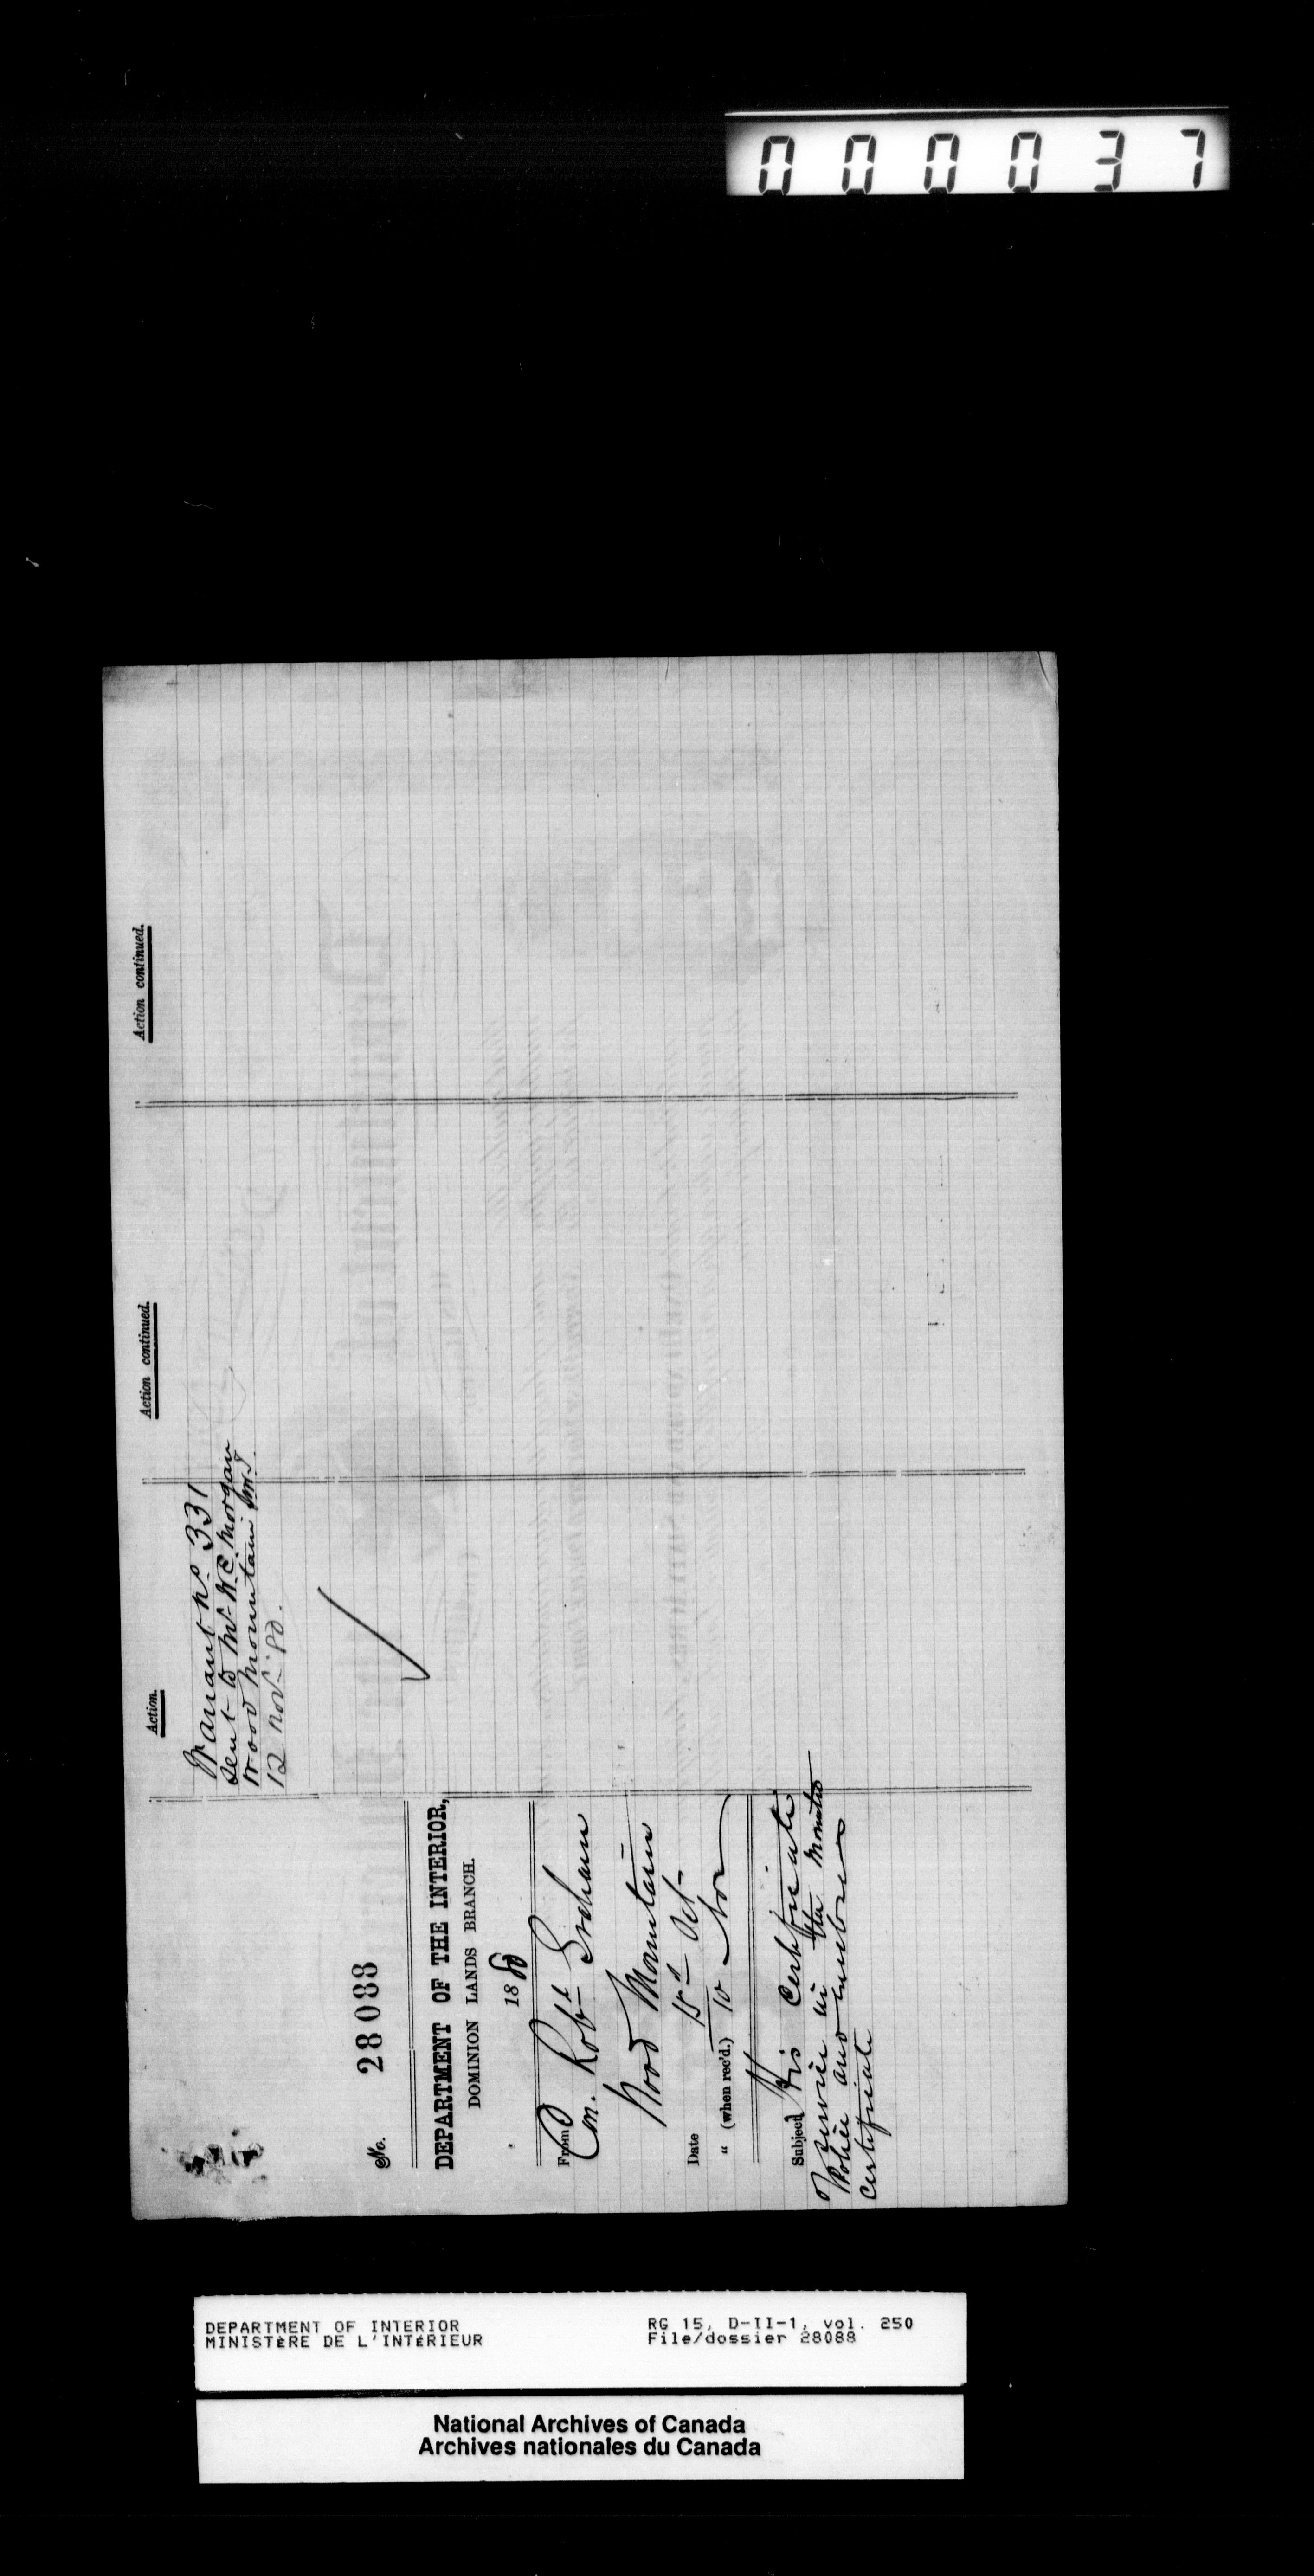 000037
No. 28088
DEPARTMENT OF THE INTERIOR,
DOMINION LANDS BRANCH.
1880
From
Robt Graham
Wood Mountain
Date 15th Oct
" (when rec'd.) 10 Nov
Subject His Certificate
of service in the Mounted
Police and encloses
Certificate
Action.
Warrant No 331
sent to Mr W.C. Morgan
Wood Mountain
12 Nov '80.
Action continued.
Action continued.
DEPARTMENT OF INTERIOR
MINISTÈRE DE L'INTÉRIEUR
RG 15, D-II-1, vol. 250
File/dossier 28088
National Archives of Canada
Archives nationales du Canada